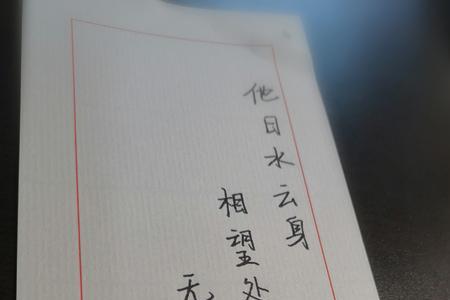 他日水云身
相望处
无